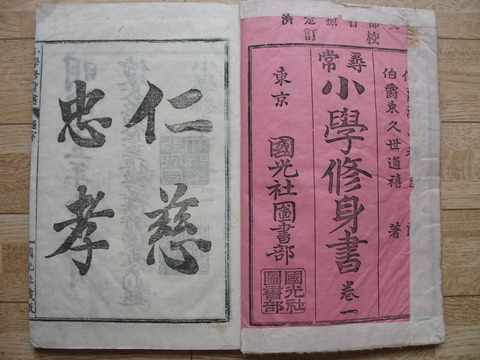 部校
省
定訂
濟
伯爵東久世道禧 著
尋常
小學修身書 卷一
東京
國光社圖書部
國光社
圖書部
仁慈
忠孝
國光社藏版